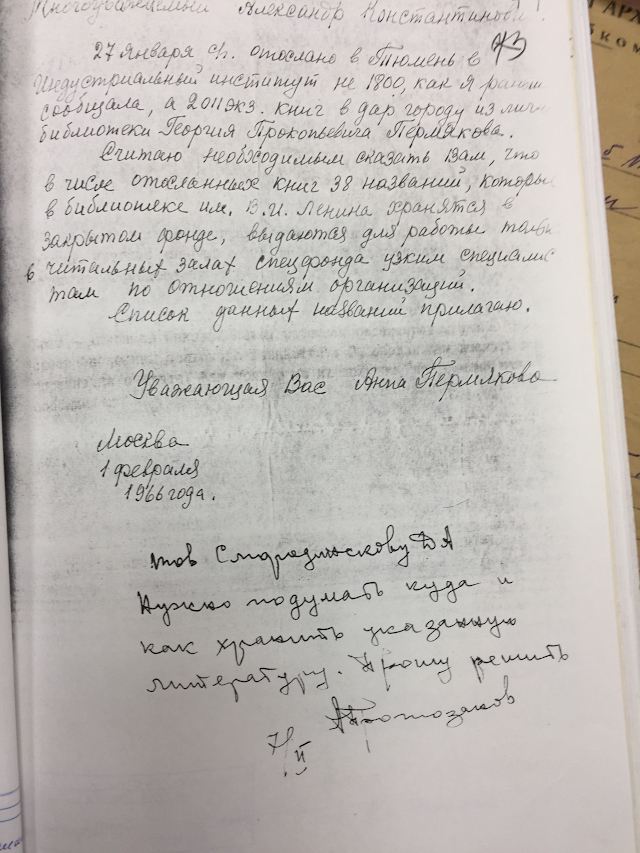 Многоуважаемый Александр Константинович!
93
27 января с/г. отослано в Тюмень в
Индустриальный институт не 1800, как я ранее
сообщала, а 2011 экз. книг в дар городу из личн
библиотеки Георгия Прокопьевича Пермякова.
Считаю необходимым сказать Вам, что
в числе отосланных книг 38 названий, которые
в библиотеке им. В.И. Ленина хранятся в
закрытом фонде, выдаются для работы только
в читальных залах спецфонда узким специалис
там по отношениям организаций.
Список данных названий прилагаю.
Уважающая Вас Анна Пермякова
Москва
1 февраля
1966 года.
тов Смородинскову ДА
Нужно подумать куда и
как хранить указанную
литературу. Прошу решить
АПротозанов
7/II
АРХ
КОМ